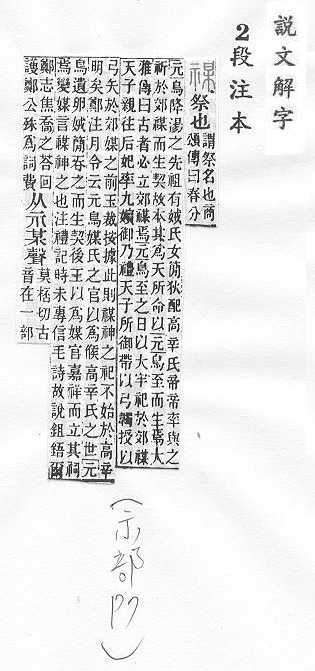 説文解字
2段注本
禖 祭也 謂祭名也商
頌傳曰春分
元鳥降湯之先祖有娀氏女簡狄配高辛氏帝帝率與之
祈於郊禖而生契故本其爲天所命以元鳥至而生焉大
雅傳曰古者必立郊禖焉元鳥至之日以大牢祀於郊禖
天子親往后妃率九嬪御乃禮天子所御帶以弓韣授以
弓矢於郊禖之前玉裁按據此則禖神之祀不始於高辛
明矣鄭注月令云元鳥媒氏之官以爲候高辛氏之世元
鳥遺卵娀簡吞之而生契後王以爲媒官嘉祥而立其祠
焉變媒言禖神之也注禮記時未專信毛詩故說鉏鋙爾
鄭志焦喬之荅回
護鄭公殊爲詞費 从示某聲 莫桮切古
音在一部
(示部P7)